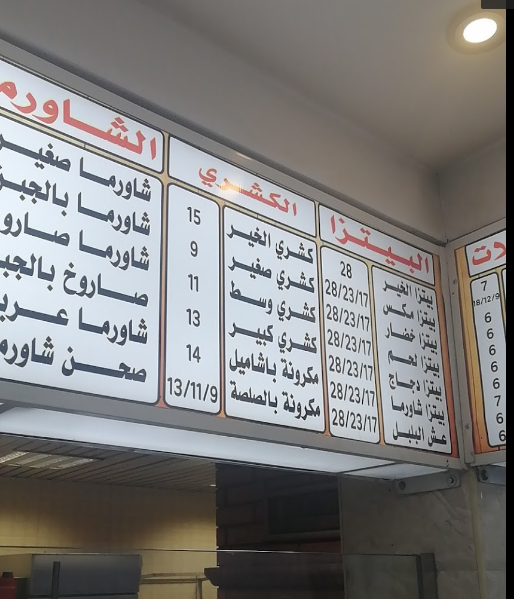 الشاورم
شاورما صغير
شاورما بالجبن
شاورما صارو
صاروخ بالجب
شاورما عرب
صحن شاورم
الكشري
كشري الخير 15
كشري صغير 9
كشري وسط 11
كشري كبير 13
مكرونة باشاميل 14
مكرونة بالصلصة 13/11/9
البيتزا
بيتزا الخير 28
بيتزا مكس 28/23/17
بيتزا خضار 28/23/17
بيتزا لحم 28/23/17
بيتزا دجاج 28/23/17
بيتزا شاورما 28/23/17
عش البلبل 28/23/17
لات
7
18/12/9
6
6
6
6
7
6
6